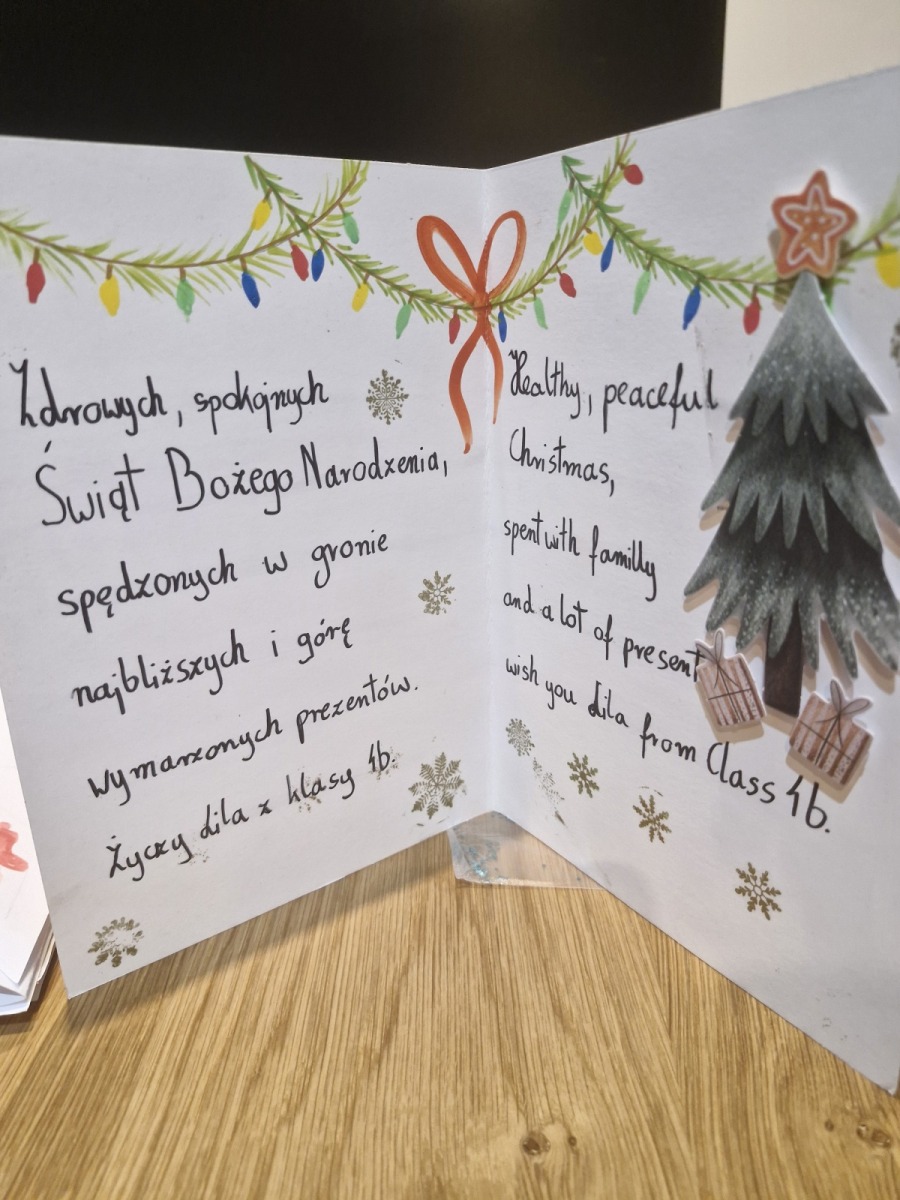 Zdrowych, spokojnych
Świąt Bożego Narodzenia,
spędzonych w gronie
najbliższych i górę
wymarzonych prezentów.
Życzy Lila z klasy 4b.
Healthy, peaceful
Christmas,
spent with familly
and a lot of present
wish you Lila from Class 4b.